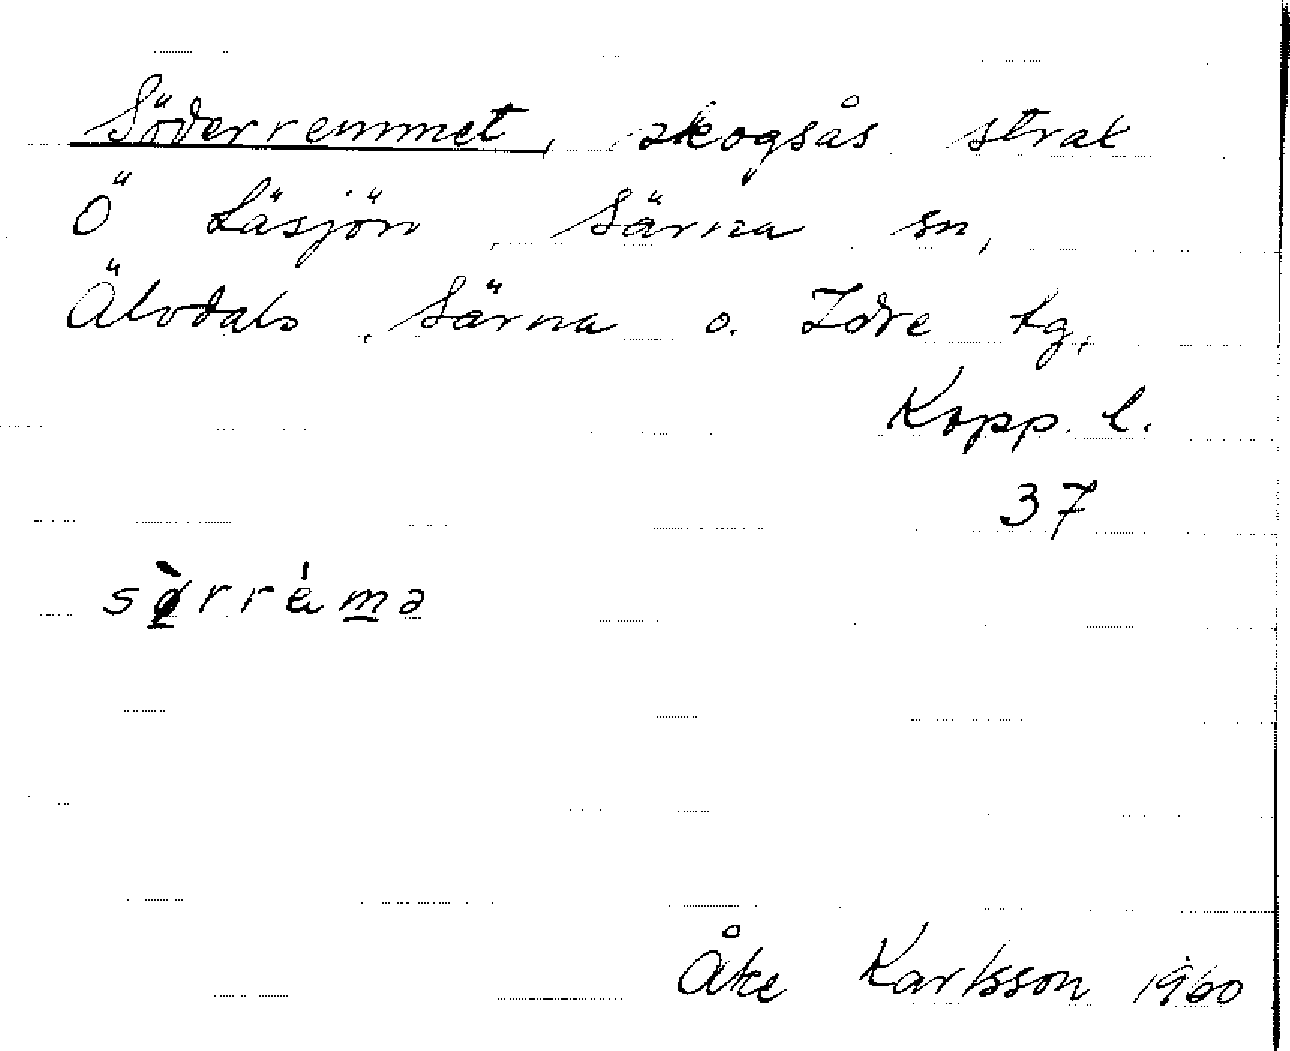 Söderremmet, skogsås strax
Ö Läsjön, Särna sn,
Älvdals, Särna o. Idre tg,
Kopp. l.
37
Åke Karlsson 1960